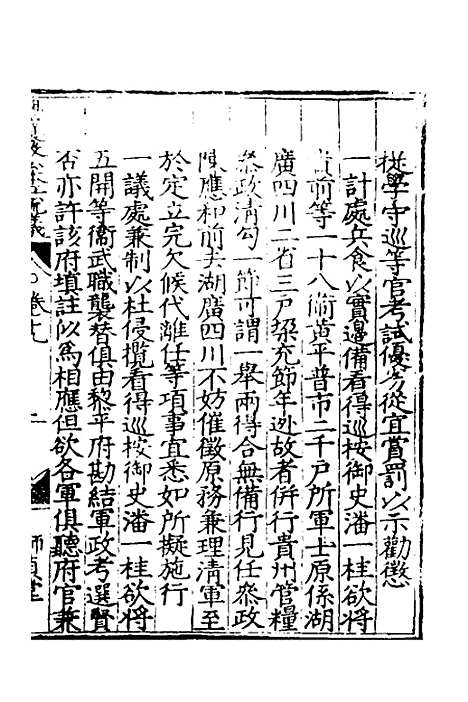 從學守巡等官考試優劣從宜賞罰以示勸懲
一計處兵食以實邊備看得巡按御史潘一桂欲將
前等一十八衛黃平普市二千戶所軍士原係湖
廣四川二省三戶朶充節年逃故者併行貴州管糧
叅政清勾一節可謂一舉兩得合無備行見任叅政
陳應和前去湖廣四川不妨催徵原務兼理清軍至
於定立完欠候代離任等項事宜悉如所擬施行
一議處兼制以杜侵攬看得巡按御史潘一桂欲將
五開等衛武職襲替俱由黎平府勘結軍政考選賢
否亦許該府填註以為相應但欲各軍俱聽府官兼
卷十
二